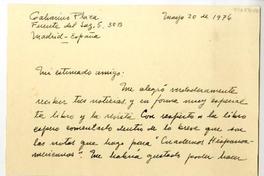 Galvarino Plaza
Fuente del Saz, 5, 3ºB
Madrid - España
Mayo 20 de 1976
Mi estimado amigo:
Me alegró verdaderamente
recibir tus noticias y en forma muy especial
tu libro y la revista. Con respecto a tu libro
espero comentarlo dentro de lo breve que son
las notas que hago para "Cuadernos Hispanoa-
mericanos". Me habría gustado poder hacer